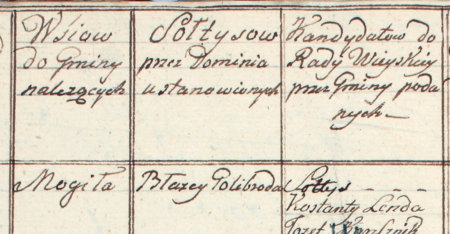 Wsiow
do Gminy
należących
Sołtysow
przez Dominia
ustanowionych
Kandydatow do
Rady Wieyskiey
przez Gminy poda
nych
Mogiła
Błazey Polibroda
Sołtys
Kostanty Lenda
Jozef